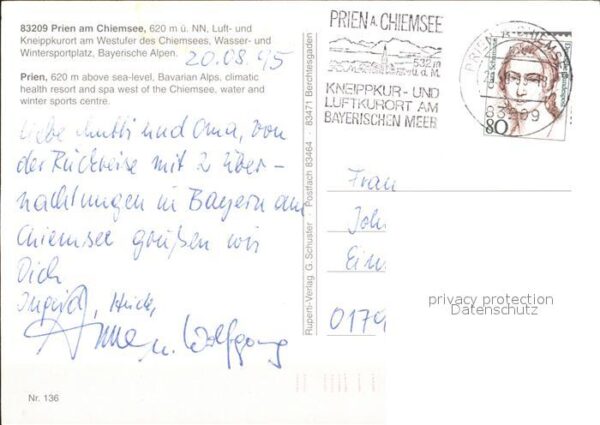 83209 Prien am Chiemsee, 620 m ü. NN, Luft- und
Kneippkurort am Westufer des Chiemsees, Wasser- und
Wintersportplatz, Bayerische Alpen.
20.08.95
Prien, 620 m above sea-level, Bavarian Alps, climatic
health resort and spa west of the Chiemsee, water and
winter sports centre.
Liebe Mutti und Oma, von
der Rückreise mit 2 Über-
nachtungen in Bayern am
Chiemsee grüßen wir
Dich
Ingrid,
Anne u. Wolfgang
Nr. 136
Ruperti-Verlag G. Schuster · Postfach 83464 · 83471 Berchtesgaden
PRIEN A. CHIEMSEE
532 m
ü. d. M.
KNEIPPKUR- UND
LUFTKURORT AM
BAYERISCHEN MEER
PRIEN A. CHIEMSEE
83209
80
Frau
Joh
Ein
0179
privacy protection
Datenschutz